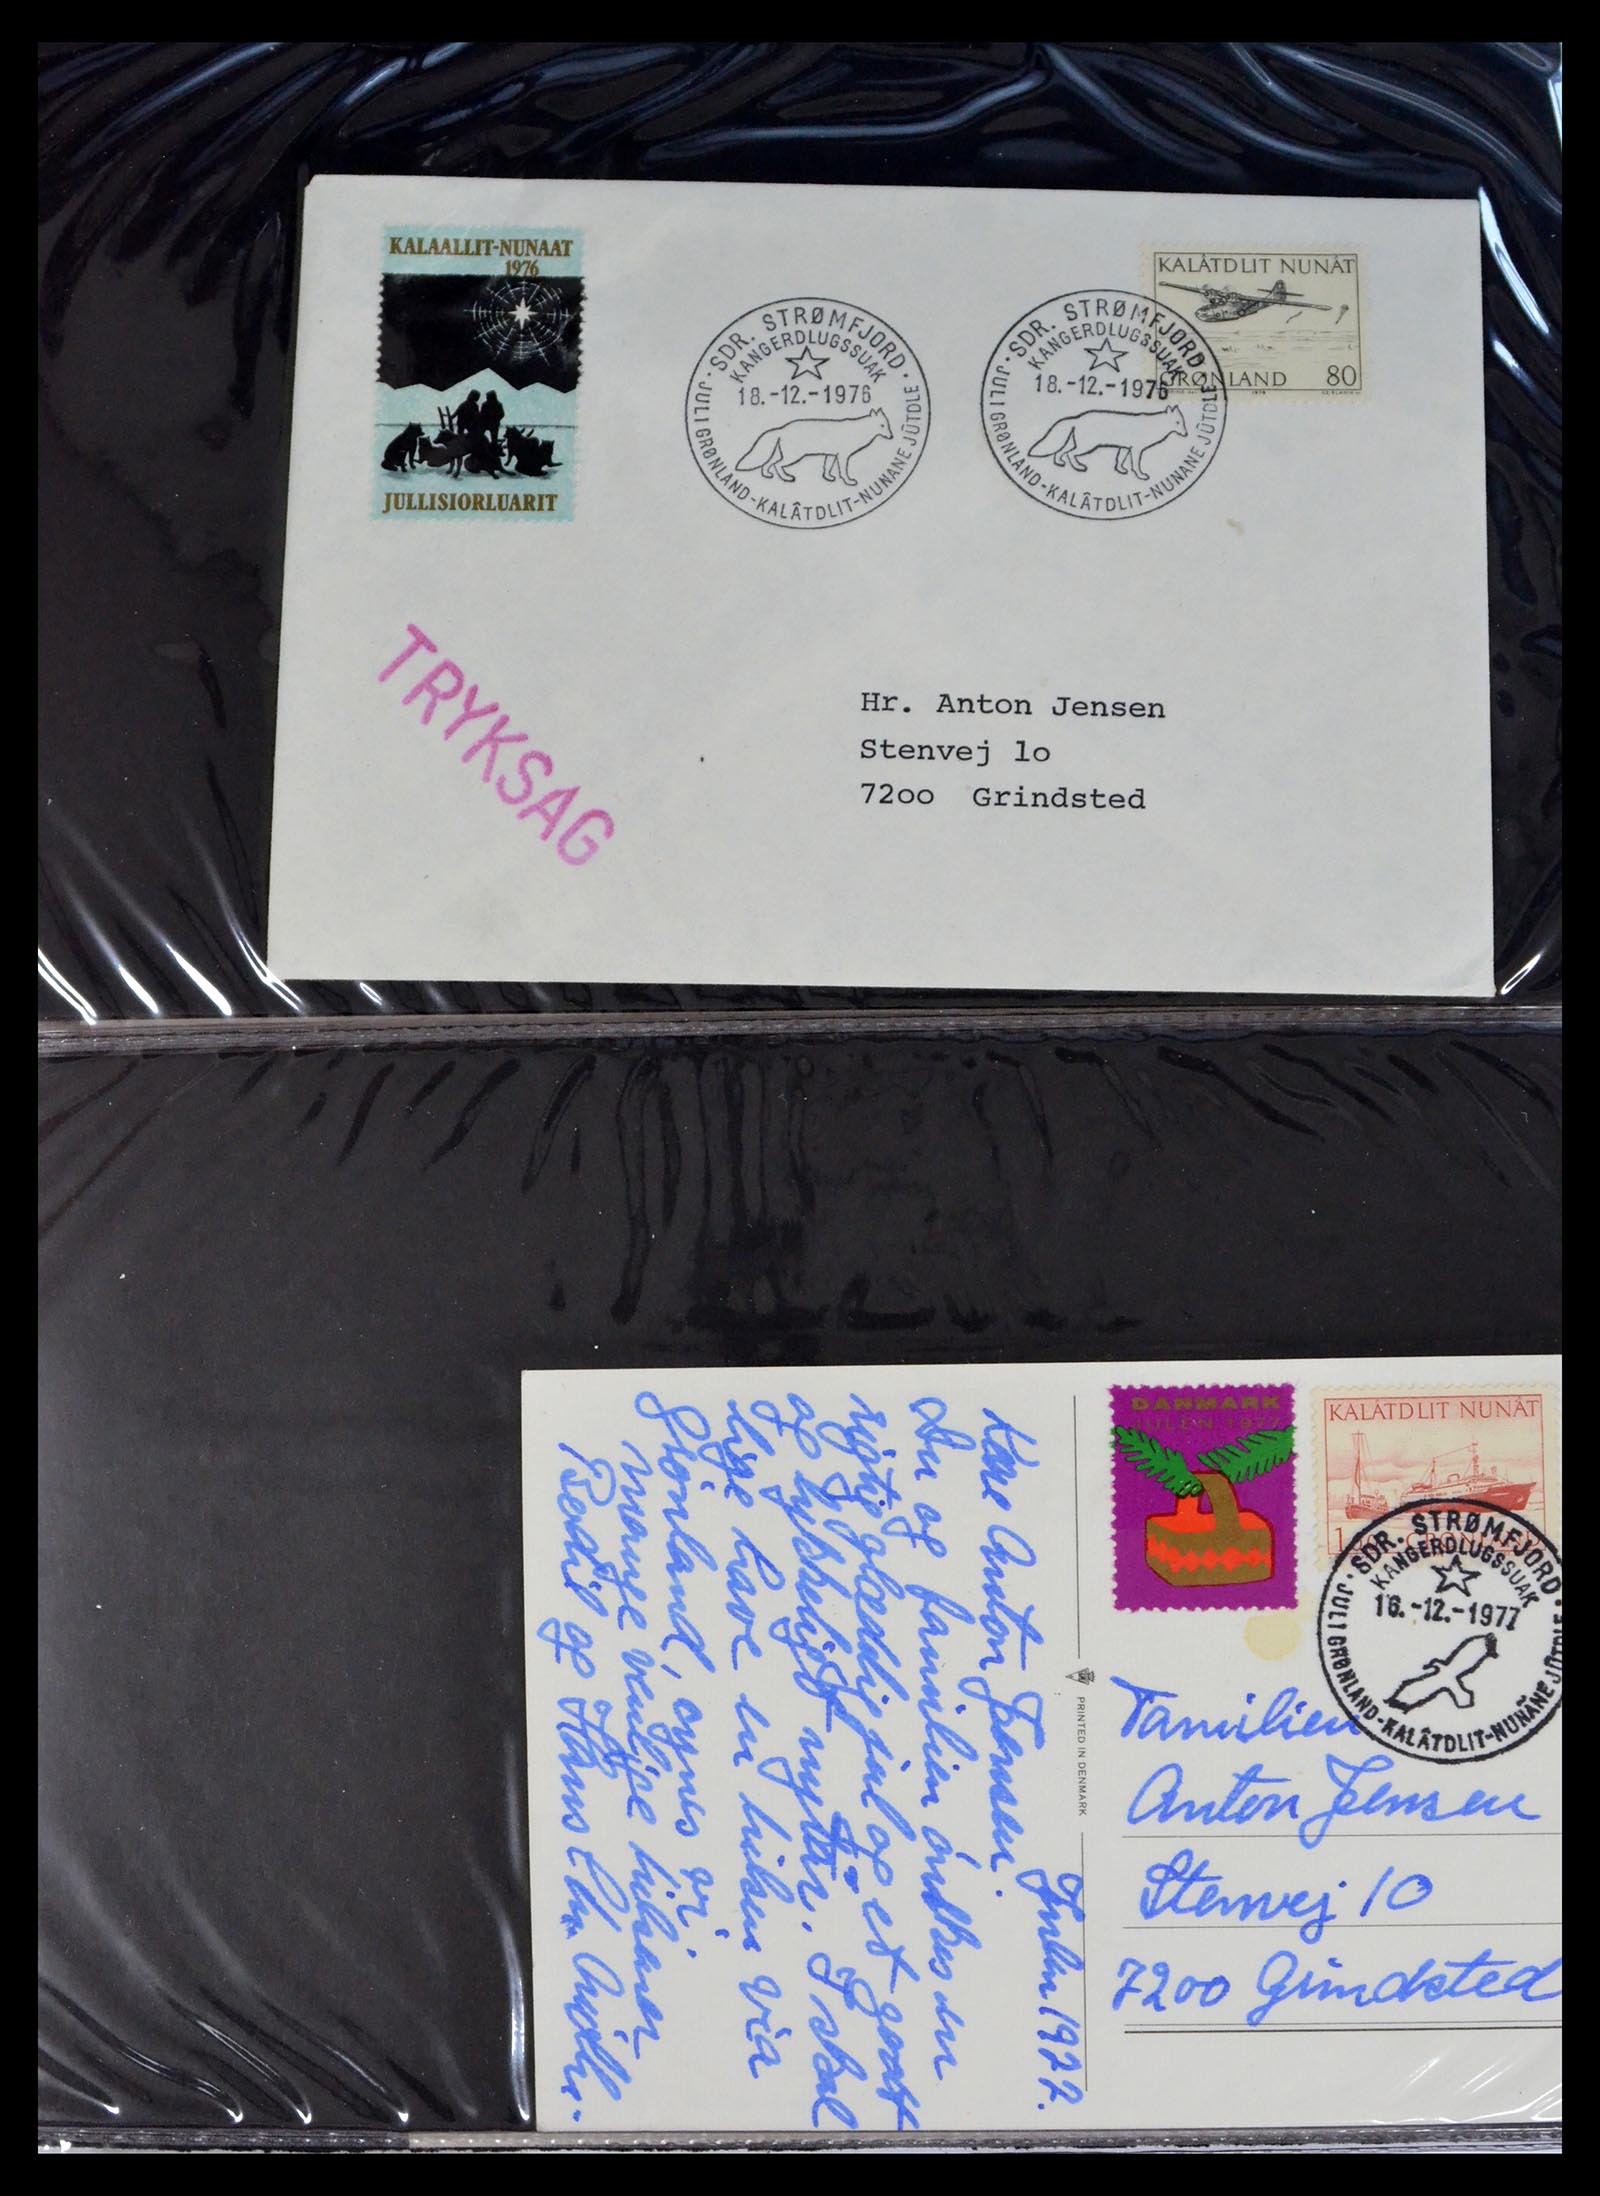 KALAALLIT-NUNAAT
1976
JULLISIORLUARIT
SDR. STRØMFJORD
KANGERDLUGSSUAK
18.-12.-1976
JUL I GRØNLAND-KALÂTDLIT-NUNANE JÛTDLE
SDR. STRØMFJORD
KANGERDLUGSSUAK
18.-12.-1976
JUL I GRØNLAND-KALÂTDLIT-NUNANE JÛTDLE
KALÂTDLIT NUNÂT
GRØNLAND 80
TRYKSAG
Hr. Anton Jensen
Stenvej lo
72oo Grindsted
Julen 1977.
Kære Anton Jensen.
Du og familien ønskes en
rigtig glædelig jul og et godt
og lykkeligt nytår. I skal
lige have en hilsen via
Grönland, synes vi.
Mange venlige hilsner
Bodil og Hans Chr.
PRINTED IN DENMARK
DANMARK
JULEN 1977
KALÂTDLIT NUNÂT
SDR. STRØMFJORD
KANGERDLUGSSUAK
16.-12.-1977
JUL I GRØNLAND-KALÂTDLIT-NUNÂNE JÛTDLE
Familien
Anton Jensen
Stenvej 10
7200 Grindsted